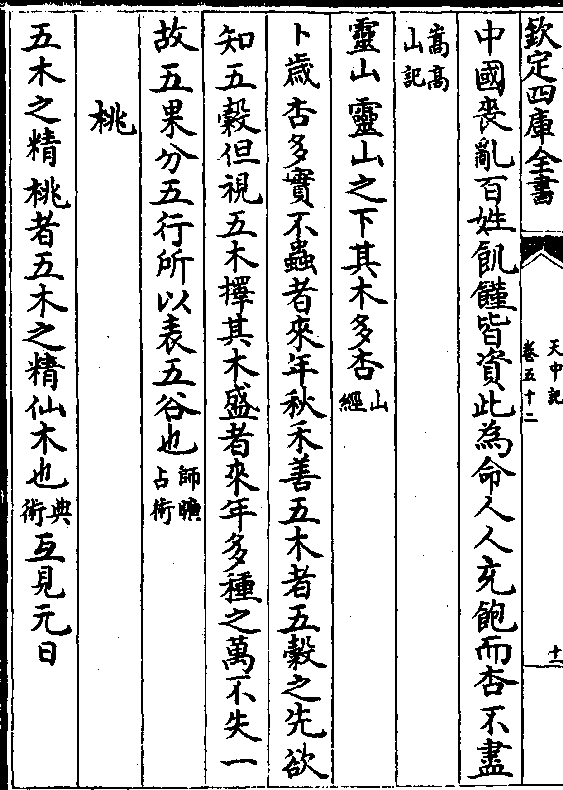 欽定四庫全書
天中記
卷五十二
十一
中國喪亂百姓飢饉皆資此為命人人充飽而杏不盡
嵩高
山記
靈山 靈山之下其木多杏
山
經
卜歲 杏多實不蟲者來年秋禾善五木者五穀之先欲
知五穀但視五木擇其木盛者來年多種之萬不失一
故五果分五行所以表五谷也
師曠
占術
桃
五木之精 桃者五木之精仙木也
典
術
互見元日